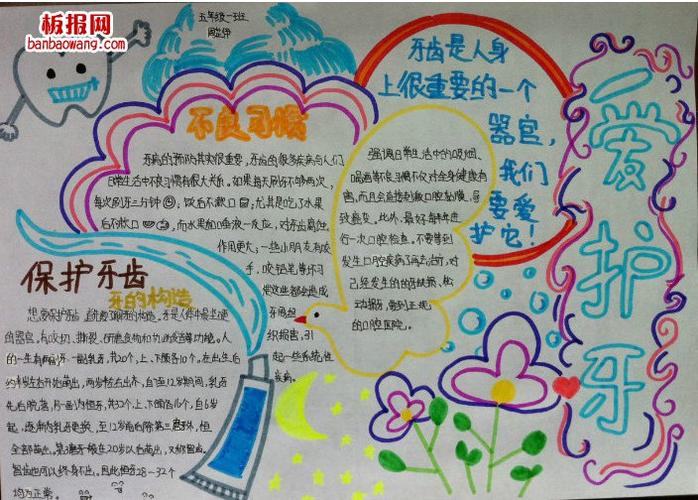 板报网
banbaowang.com
五年级一班
不良习惯
牙病的预防其实很重要，牙齿的很多疾病与人们
日常生活中不良习惯有很大关系。如果每天刷牙不够两次，
每次刷牙三分钟
饭后不漱口
尤其是吃了水果
后不漱口
而水果加唾液一反应，对牙齿腐蚀
作用更大；一些小朋友有咬
手，咬铅笔等坏习
这些都会造成
牙周组
织损害，引
起一些系统性
疾病。
牙齿是人身
上很重要的一个
器官，
我们
要爱
护它！
强调日常生活中的吸烟、
喝酒等不良习惯不仅对全身健康有
害，而且会直接刺激口腔黏膜，导
致癌变。此外，最好每半年进
行一次口腔检查。不要等到
发生口腔疾病了再去治疗，对
己经发生的
动
要到正规
的口腔医院。
爱护牙
保护牙齿
牙的构造
想要保护牙齿
牙的构造。牙是人体中最坚硬
的器官，有咬切、撕裂、
食物和
功能。人
的一生有两副牙
一副乳牙，共20个，上、下颌各10个。在出生后
约半岁左右开始萌出，两岁
出齐，自6至12岁期间，乳牙
先后脱落，另一副为恒牙，共32个，上、下颌各16个，自6岁
起，逐渐为乳牙更换，至12岁前后除第三磨牙外，恒牙
全部萌出。第三磨牙
在20岁以后萌出，又称智齿。
智齿也可以终身不出。因此恒牙28-32个
均为正常。